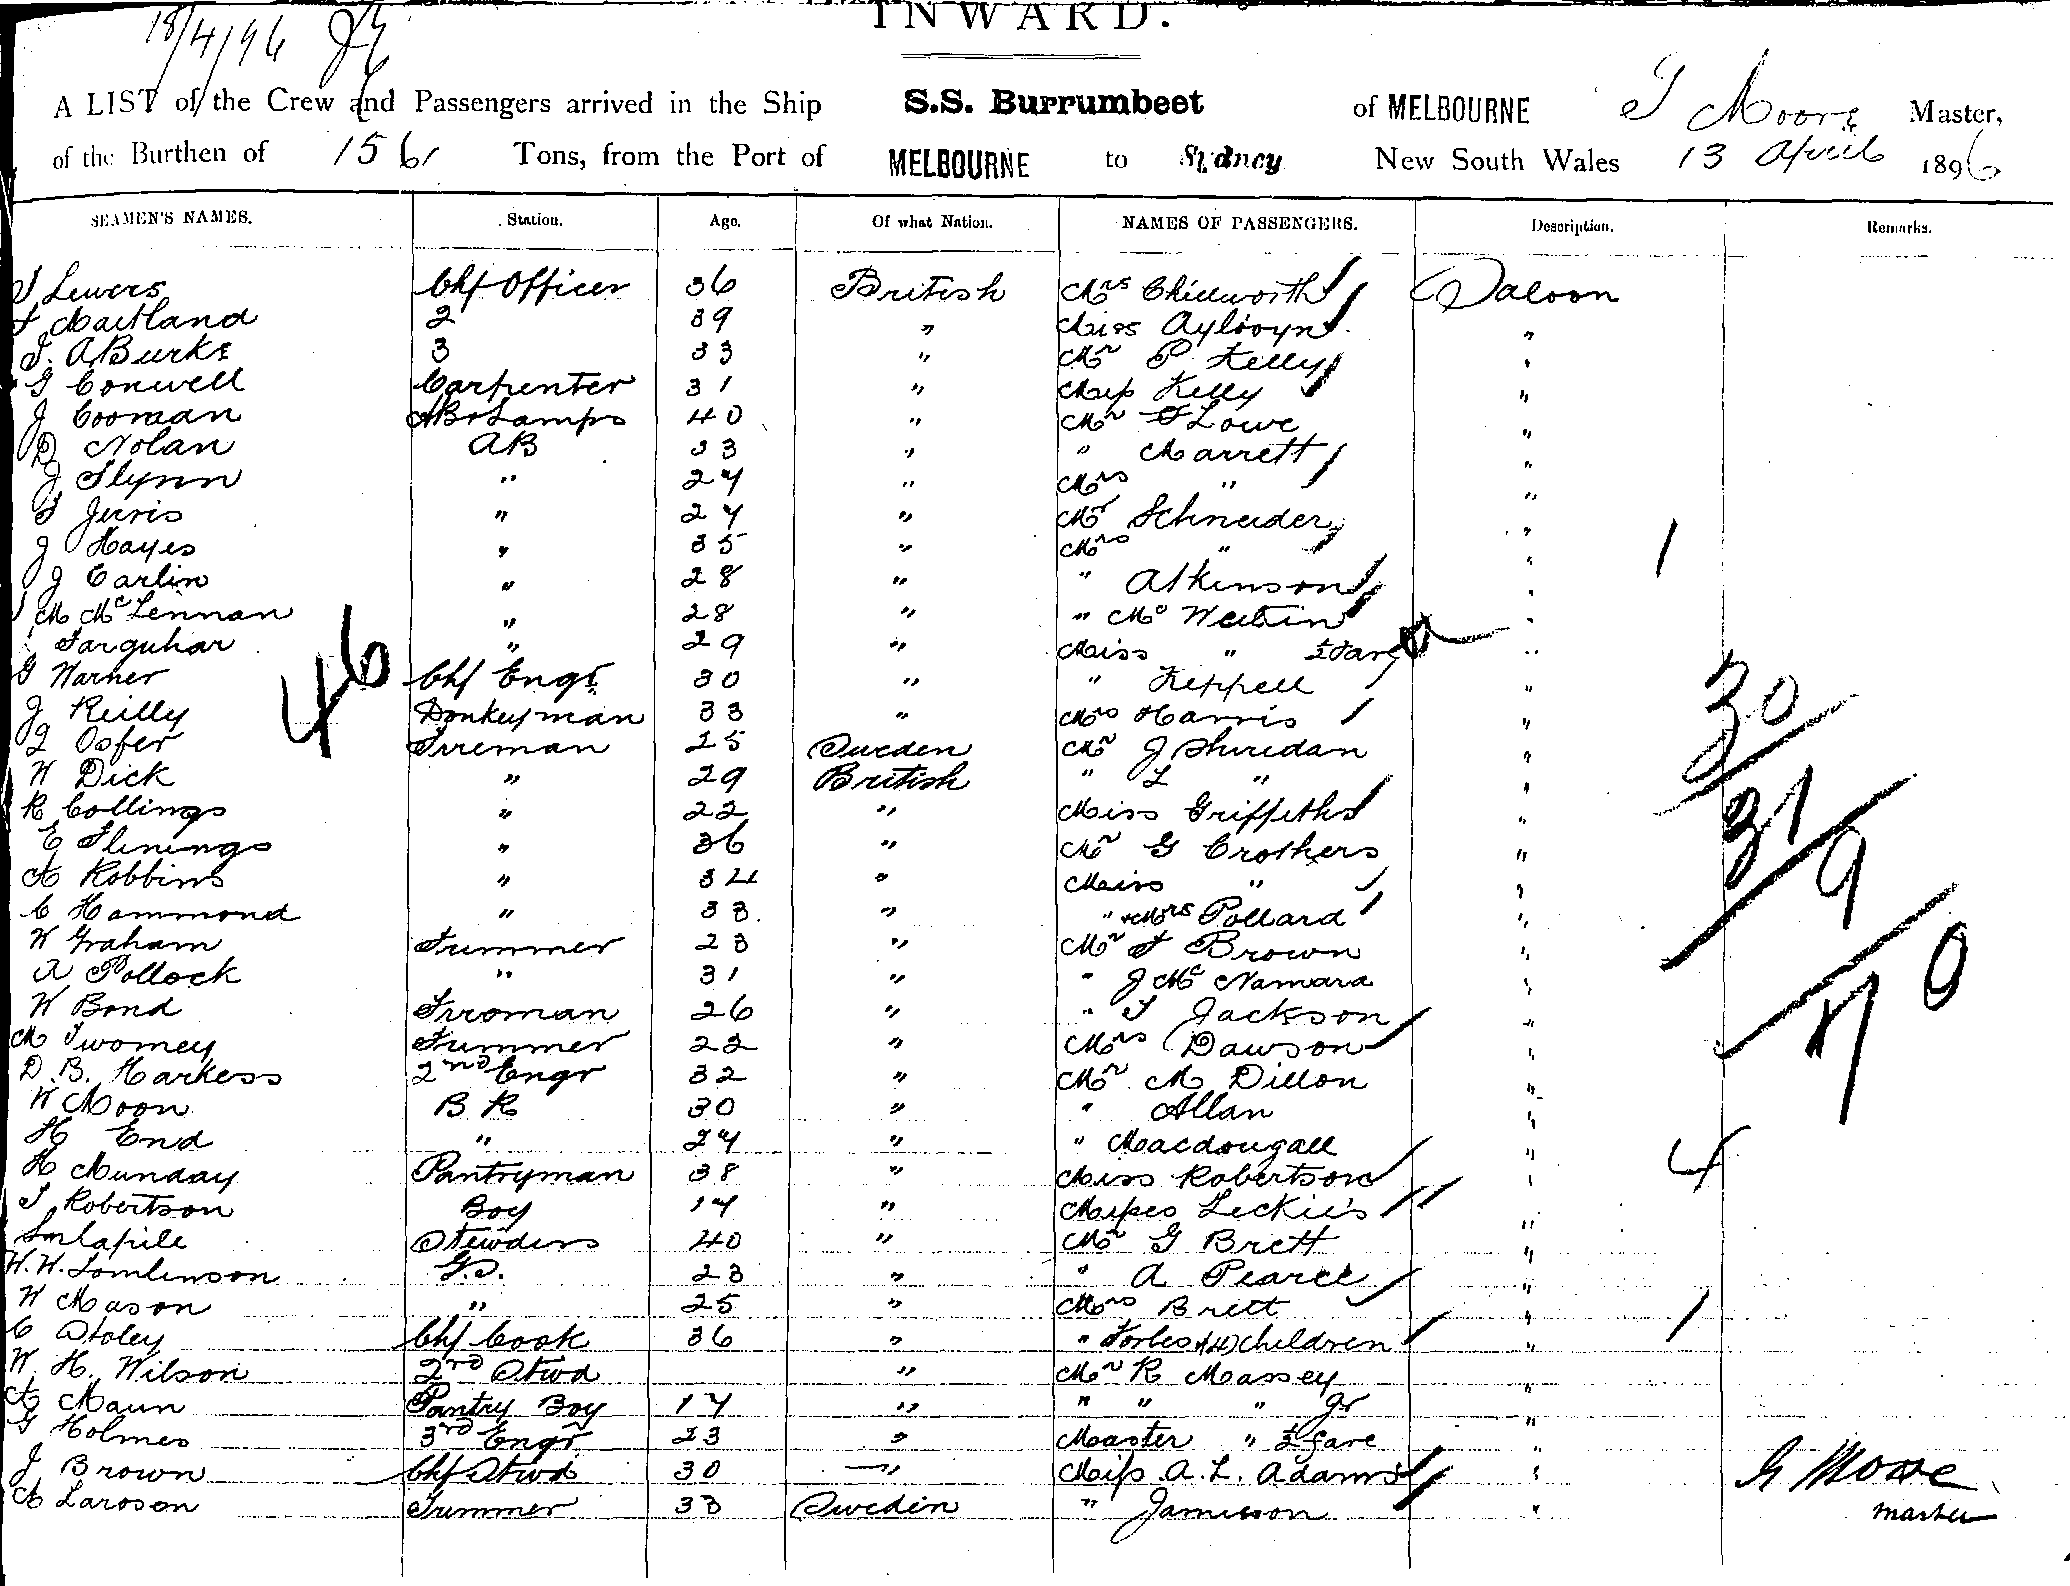 18/4/96
INWARD.
A LIST of the Crew and Passengers arrived in the Ship S.S. Burrumbeet of MELBOURNE Moore Master,
of the Burthen of 156 Tons, from the Port of MELBOURNE to Sydney New South Wales 13 April 1896
SEAMEN'S NAMES. Station. Age. Of what Nation. NAMES OF PASSENGERS. Description. Remarks.
Lewers Chf Officer 36 British Mrs Chidworth Saloon
Maitland 2 39 " Miss Aylwyn "
A Burke 3 33 " Mr P. Kelly "
G Conwell Carpenter 31 " Miss Kelly "
J Cooman AB & Lamps 40 " Mr Lowe "
D Nolan AB 33 " " Marrett "
J Flynn " 27 " Mrs " "
Juris " 27 " Mr Schneider "
J Hayes " 35 " Mrs " " 1
J Carlin " 28 " " Atkinson "
M McLennan " 28 " " Mc "
Farquhar " 29 " Miss " ½ Fare "
46
G Warner Chf Engr. 30 " " Keppell "
J Reilly Donkeyman 33 " Mrs Harris "
Osfer Fireman 25 Sweden Mr J Sheridan "
W Dick " 29 British " L " "
R Collings " 22 " Miss Griffiths "
E " 36 " Mr G Crothers "
A Robbins " 34 " Miss " "
C Hammond " 33. " " & Mrs Pollard "
W Graham Trimmer 23 " Mr T Brown "
A Pollock " 31 " " J McNamara "
W Bond Fireman 26 " " T Jackson "
M Twomey Trimmer 22 " Mrs Dawson "
30
31
9
70
D. B. Harkess 2nd Engr 32 " Mr M Dillon "
W Moon B R 30 " " Allan "
H End " 27 " " Macdougall "
H Munday Pantryman 38 " Miss Robertson " 4
T Robertson Boy 17 " Misses Leckie's "
40 " Mr G Brett "
W. W. Tomlinson G.S. 23 " " A Pearce "
W Mason " 25 " Mrs Brett "
C Stoley Chf Cook 36 " " Forbes & (4) children " 1
W. H. Wilson 2nd Stwd " Mr R Massey "
A Maun Pantry Boy 17 " " " " Jr "
G Holmes 3rd Engr 23 " Master " ½ fare "
J Brown Chf Stwd 30 " Miss A. L. Adams "
A Larsson Trimmer 33 Sweden " Jamieson "
Moore
Master